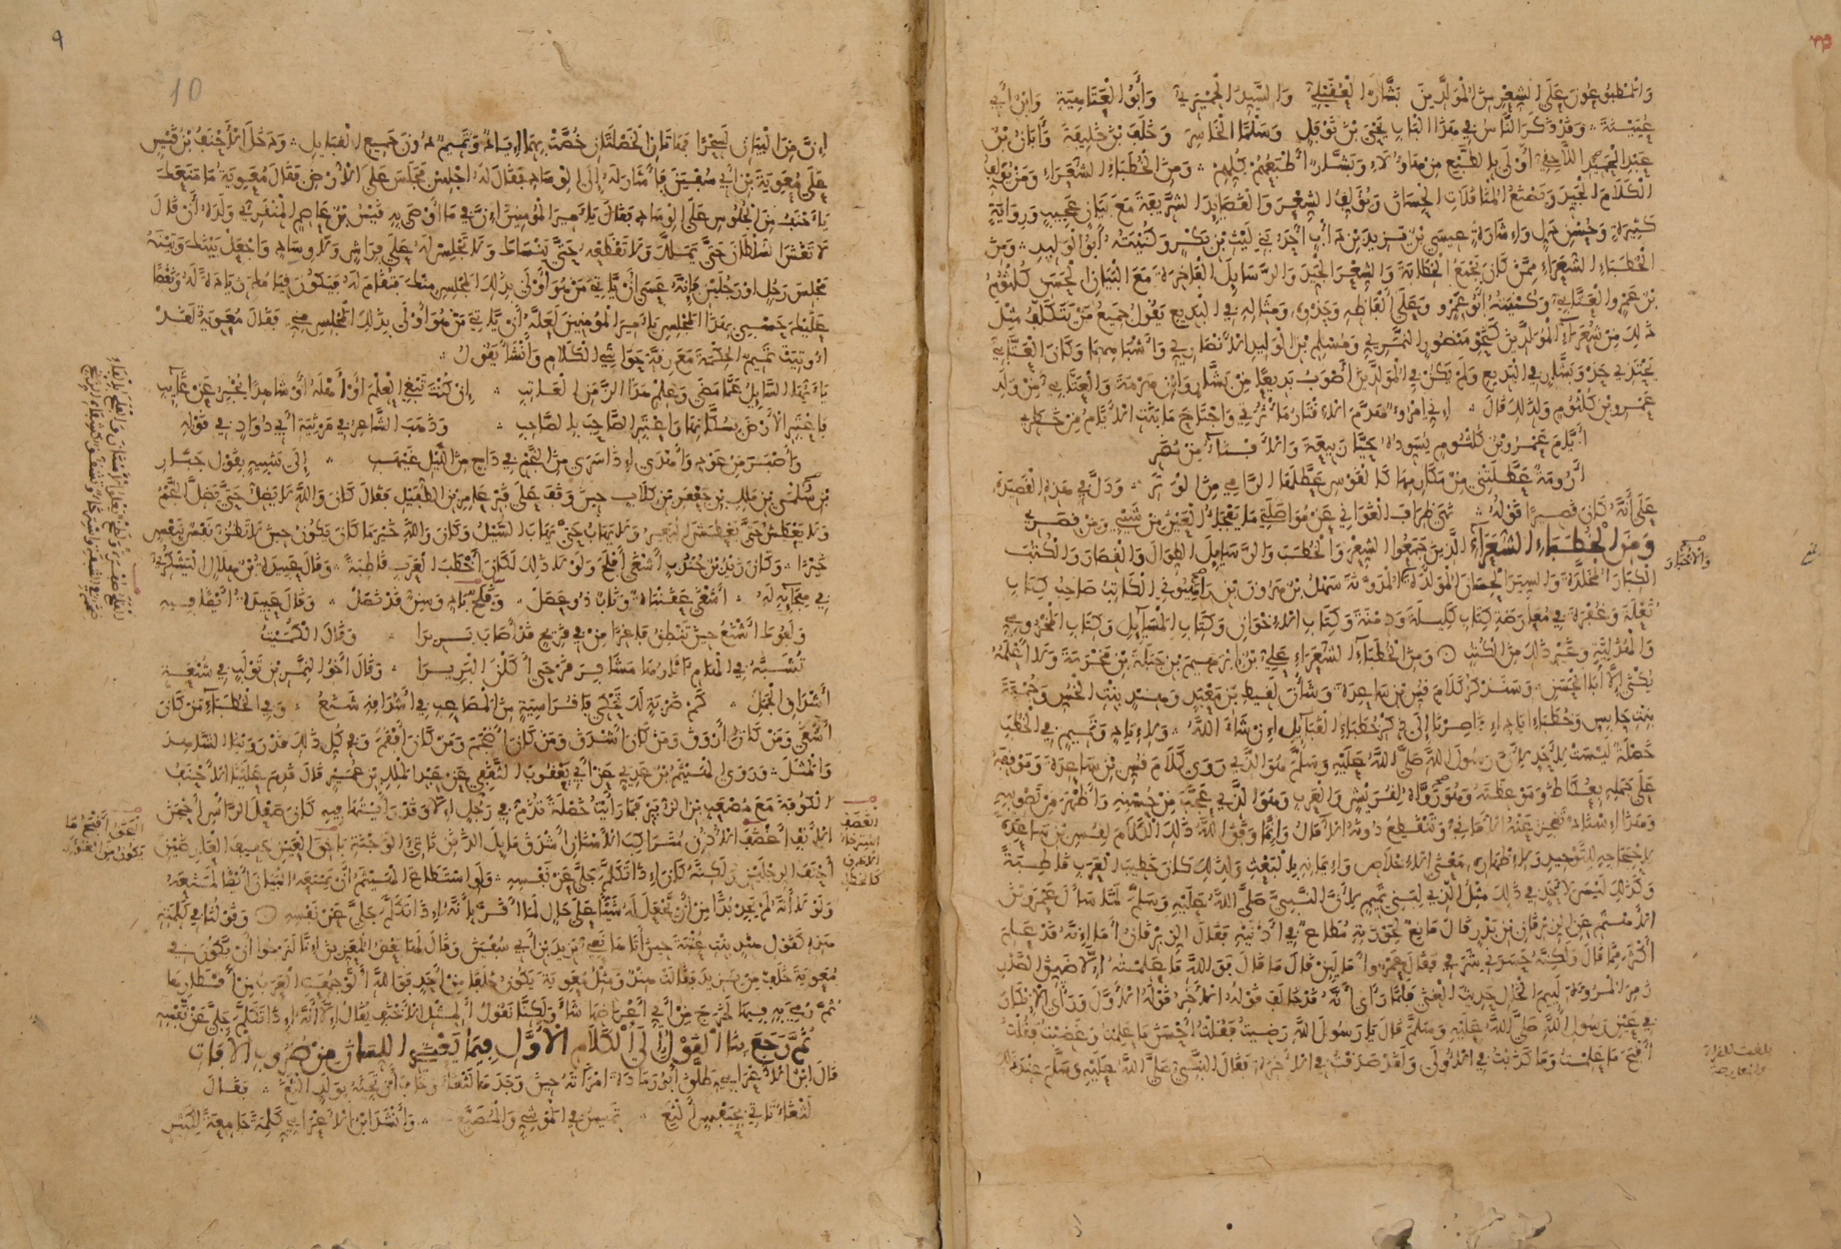 والمطبوعون على الشعر من المولدين بشار العقيلي والسيد الحميري وأبو العتاهية وابن أبي
عيينة وقد ذكر الناس في هذا الباب يحيى بن نوفل وسلما الخاسر وخلف بن خليفة وأبان بن
عبد الحميد اللاحقي أولى بالطبع من هاولاء وبشار أطبعهم كلهم ومن الخطباء الشعراء ومن يؤلف
الكلام الجيد ويصنع المناقلات الحسان ويؤلف الشعر والقصايد الشريفة مع بيان عجيب ورواية
كثيرة وحسن دل وإشارة عيسى بن يزيد بن دأب أحد بني ليث بن بكر وكنيته أبو الوليد ومن
الخطباء الشعراء ممن كان يجمع الخطابة والشعر الجيد والرسايل الفاخرة مع البيان الحسن كلثوم
بن عمرو العتابي وكنيته أبو عمرو وعلى ألفاظه وحذوه ومثاله في البديع يقول جميع من يتكلف مثل
ذلك من شعراء المولدين كنحو منصور النمري ومسلم بن الوليد الأنصاري وأشباههما وكان العتابي
يحتذي حذو بشار في البديع ولم يكن في المولدين أصوب بديعا من بشار وابن هرمة والعتابي من ولد
عمرو بن كلثوم ولذلك قال إني امرؤ هدم الإقتار مأثرتي واجتاح ما بنت الأيام من خطري
أيام عمرو بن كلثوم يسوده حيا ربيعة والأفناء من مضر
أرومة عطلتني من مكارمها كالقوس عطلها الرامي من الوتر ودل في هذه القصيدة
على أنه كان قصيرا قوله نهى طراف الغواني عن مواصلتي ما يفجأ العين من شيبي ومن قصري
ومن الخطباء الشعراء الذين جمعوا الشعر والخطب والرسايل الطوال والقصار والكتب
الكبار المخلدة والسير الحسان المولدة المدونة سهل بن هرون بن راهيوني الكاتب صاحب كتاب
ثعلة وعفرة في معارضة كتاب كليلة ودمنة وكتاب الإخوان وكتاب المسايل وكتاب المخزومي
والهذلية وغير ذلك من الكتب ومن الخطباء الشعراء علي بن إبرهيم بن جبلة بن مخرمة ولا أعلمه
يكنى إلا أبا الحسن وسنذكر كلام قس بن ساعدة وشأن لقيط بن معبد وهند بنت الخس وجمعة
بنت حابس وخطباء إياد إذا صرنا إلى ذكر خطباء القبايل إن شاء الله ولإياد وتميم في الخطب
خصلة ليست لأحد لأن رسول الله صلى الله عليه وسلم هو الذي روى كلام قس بن ساعدة وموقفه
على جمله بعكاظ وموعظته وهو رواه لقريش والعرب وهو الذي عجب من حسنه وأظهر من تصويبه
وهذا إسناد تعجز عنه الأماني وتنقطع دونه الآمال وإنما وفق الله ذلك الكلام لقس بن ساعدة
لاحتجاجه للتوحيد ولإظهاره معنى الإخلاص وإيمانه بالبعث ولذلك كان خطيب العرب قاطبة
وكذلك ليس لأحد في ذلك مثل الذي لبني تميم لأن النبي صلى الله عليه وسلم لما سأل عمرو بن
الأهتم عن الزبرقان بن بدر قال مانع لحوزته مطاع في أدنيه فقال الزبرقان أما إنه قد علم
أكثر مما قال ولكنه حسدني شرفي فقال عمرو أما لين قال ما قال فوالله ما علمته إلا ضيق الصدر
زمر المروءة لييم الخال حديث الغنى فلما رأى أنه قد خالف قوله الآخر قوله الأول ورأى الإنكار
في عين رسول الله صلى الله عليه وسلم قال يا رسول الله رضيت فقلت أحسن ما علمت وغضبت فقلت
أقبح ما علمت وما كذبت في الأولى ولقد صدقت في الآخرة فقال النبي صلى الله عليه وسلم عند ذلك
والأخبار
صح
إن من البيان لسحرا فهاتان الخصلتان خصت بهما إياد وتميم دون جميع القبايل ودخل الأحنف بن قيس
على معوية بن أبي سفين فأشار له إلى الوساد فقال له اجلس فجلس على الأرض فقال معوية ما منعك
يا أحنف من الجلوس على الوساد فقال يا أمير المؤمنين إن في ما أوصى به قيس بن عاصم المنقري ولده أن قال
لا تغش السلطان حتى يملك ولا تقطعه حتى ينساك ولا تجلس له على فراش ولا وساد واجعل بينك وبينه
مجلس رجل أو رجلين فإنه عسى أن يأتي من هو أولى بذلك المجلس منك فتقام له فيكون قيامك زيادة له ونقصا
عليك حسبي بهذا المجلس يا أمير المؤمنين لعله أن يأتي من هو أولى بذلك المجلس مني فقال معوية لقد
أوتيت تميم الحكمة مع رقة حواشي الكلام وأنشأ يقول
يا أيها السايل عما مضى وعلم هذا الزمن العايب إن كنت تبغي العلم أو أهله أو شاهدا يخبر عن غايب
فاعتبر الأرض بسكانها واعتبر الصاحب بالصاحب وذهب الشاعر في مرثية أبي دواد في قوله
وأصبر من عود وأهدى إذا سرى من النجم في داج من الليل غيهب إلى شبيه بقول جبار
بن سلمى بن ملك بن جعفر بن كلاب حين وقف على قبر عامر بن الطفيل فقال كان والله لا يضل حتى يضل النجم
ولا يعطش حتى يعطش البعير ولا يهاب حتى يهاب السيل وكان والله خير ما كان يكون حين لا تظن نفس بنفس
خيرا وكان زيد بن جندب أشغى أفلح ولولا ذلك لكان أخطب العرب قاطبة وقال عبيدة بن هلال اليشكري
في هجائه له أشغى عقنباة وناب ذو عصل وقلح باد وسن قد نصل وقال عبيدة أيضا فيه
ولفوك أشنع حين تنطق فاغرا من في قريح قد أصاب بريرا وقال الكميت
تشبه في الهام آثارها مشافر قرحى أكلن البريرا وقال أخو النمر بن تولب في شنعة
أشداق الجمل كم ضربة لك تحكي فا قراسية من المصاعب في أشداقه شنع وفي الخطباء من كان
أشغى ومن كان أروق ومن كان أشدق ومن كان أضجم ومن كان أفقم وفي كل ذلك قد روينا الشاهد
والمثل وروى الهيثم بن عدي عن أبي يعقوب الثقفي عن عبد الملك بن عمير قال قدم علينا الأحنف
الكوفة مع مصعب بن الزبير فما رأينا خصلة تذم في رجل إلا وقد رأيتها فيه كان صعل الرأس أحجن
الأنف أغضف الأذن متراكب الأسنان أشدق مايل الذقن ناتئ الوجنة باخق العين خفيف العارضين
أحنف الرجلين ولكنه كان إذا تكلم جلى عن نفسه ولو استطاع الهيثم أن يمنعه البيان أيضا لمنعه
ولولا أنه لم يجد بدا من أن يجعل له شيئا على حال لما أقر بأنه إذا تكلم جلى عن نفسه وقولنا في كلمته
هذه كقول هند بنت عتبة حين أتاها نعي يزيد بن أبي سفين وقال لها بعض المعزين إنا لنرجوا أن يكون في
معوية خلف من يزيد فقالت هند ومثل معوية يكون خلفا من أحد فوالله ألو جمعت العرب من أقطارها
ثم رمي به فيها لخرج من أي أعراضها شاء ولكنا نقول ألمثل الأحنف يقال إلا أنه إذا تكلم جلى عن نفسه
ثم رجع بنا القول إلى الكلام الأول فيما يعتري اللسان من ضروب الآفات
قال ابن الأعرابي طلق أبو رمادة امرأته حين وجدها لثغاء وخاف أن تجئه بولد ألثغ فقال
لثغاء تأتي بحيفس ألثغ تميس في الموشي والمصبغ وأنشد ابن الأعرابي كلمة جامعة لكثير
10